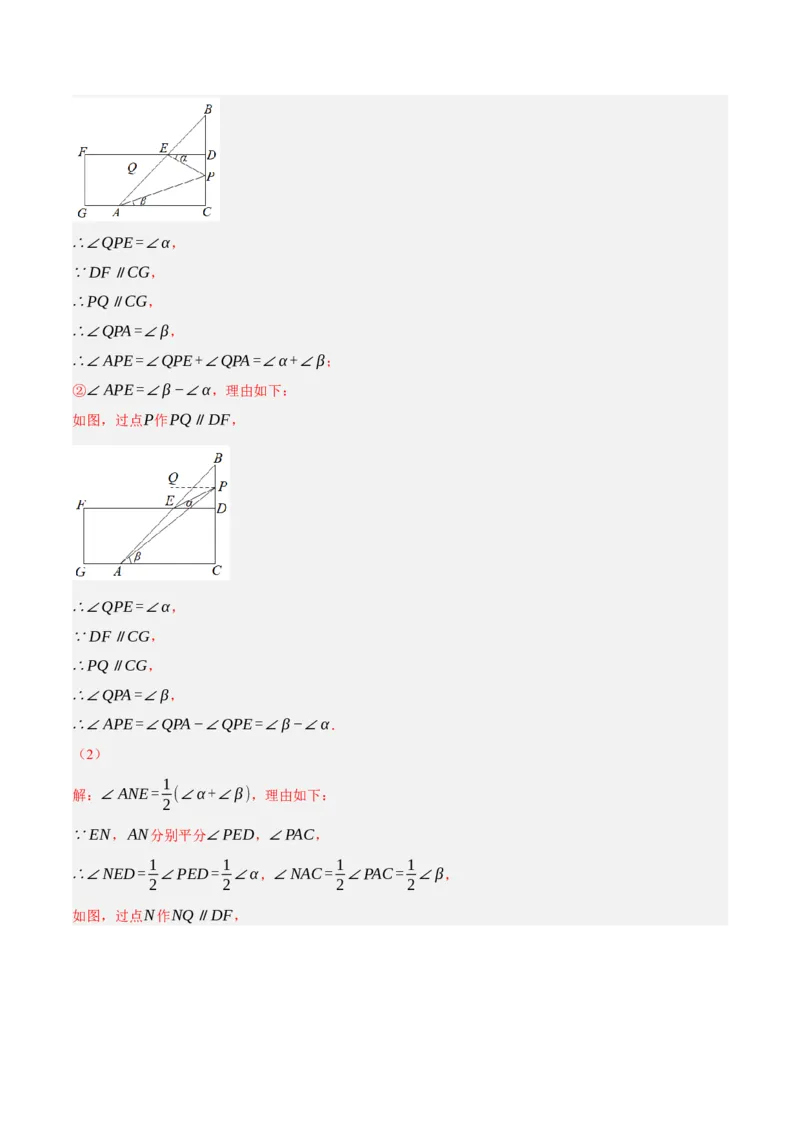 B
F E D
α
Q
P
β
G A C
∴∠QPE=∠α，
∵DF∥CG，
∴PQ∥CG，
∴∠QPA=∠β，
∴∠APE=∠QPE+∠QPA=∠α+∠β；
②∠APE=∠β−∠α，理由如下：
如图，过点P作PQ∥DF，
B
Q P
F E α D
β
G A C
∴∠QPE=∠α，
∵DF∥CG，
∴PQ∥CG，
∴∠QPA=∠β，
∴∠APE=∠QPA−∠QPE=∠β−∠α．
（2）
解：∠ANE=1/2(∠α+∠β)，理由如下：
∵EN，AN分别平分∠PED，∠PAC，
∴∠NED=1/2∠PED=1/2∠α，∠NAC=1/2∠PAC=1/2∠β，
如图，过点N作NQ∥DF，